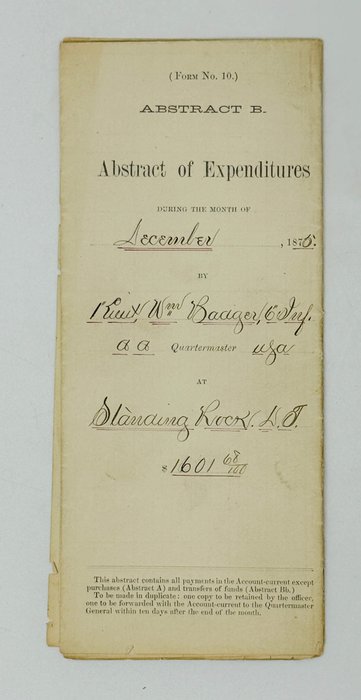 (Form No. 10.)
ABSTRACT B.
Abstract of Expenditures
DURING THE MONTH OF
December, 1875.
BY
1 Lieut, Wm Badger, 6" Inf.
a a Quartermaster usa
AT
Standing Rock. D. T.
$1601 68/100
This abstract contains all payments in the Account-current except
purchases (Abstract A) and transfers of funds (Abstract Bb.)
To be made in duplicate: one copy to be retained by the officer,
one to be forwarded with the Account-current to the Quartermaster
General within ten days after the end of the month.